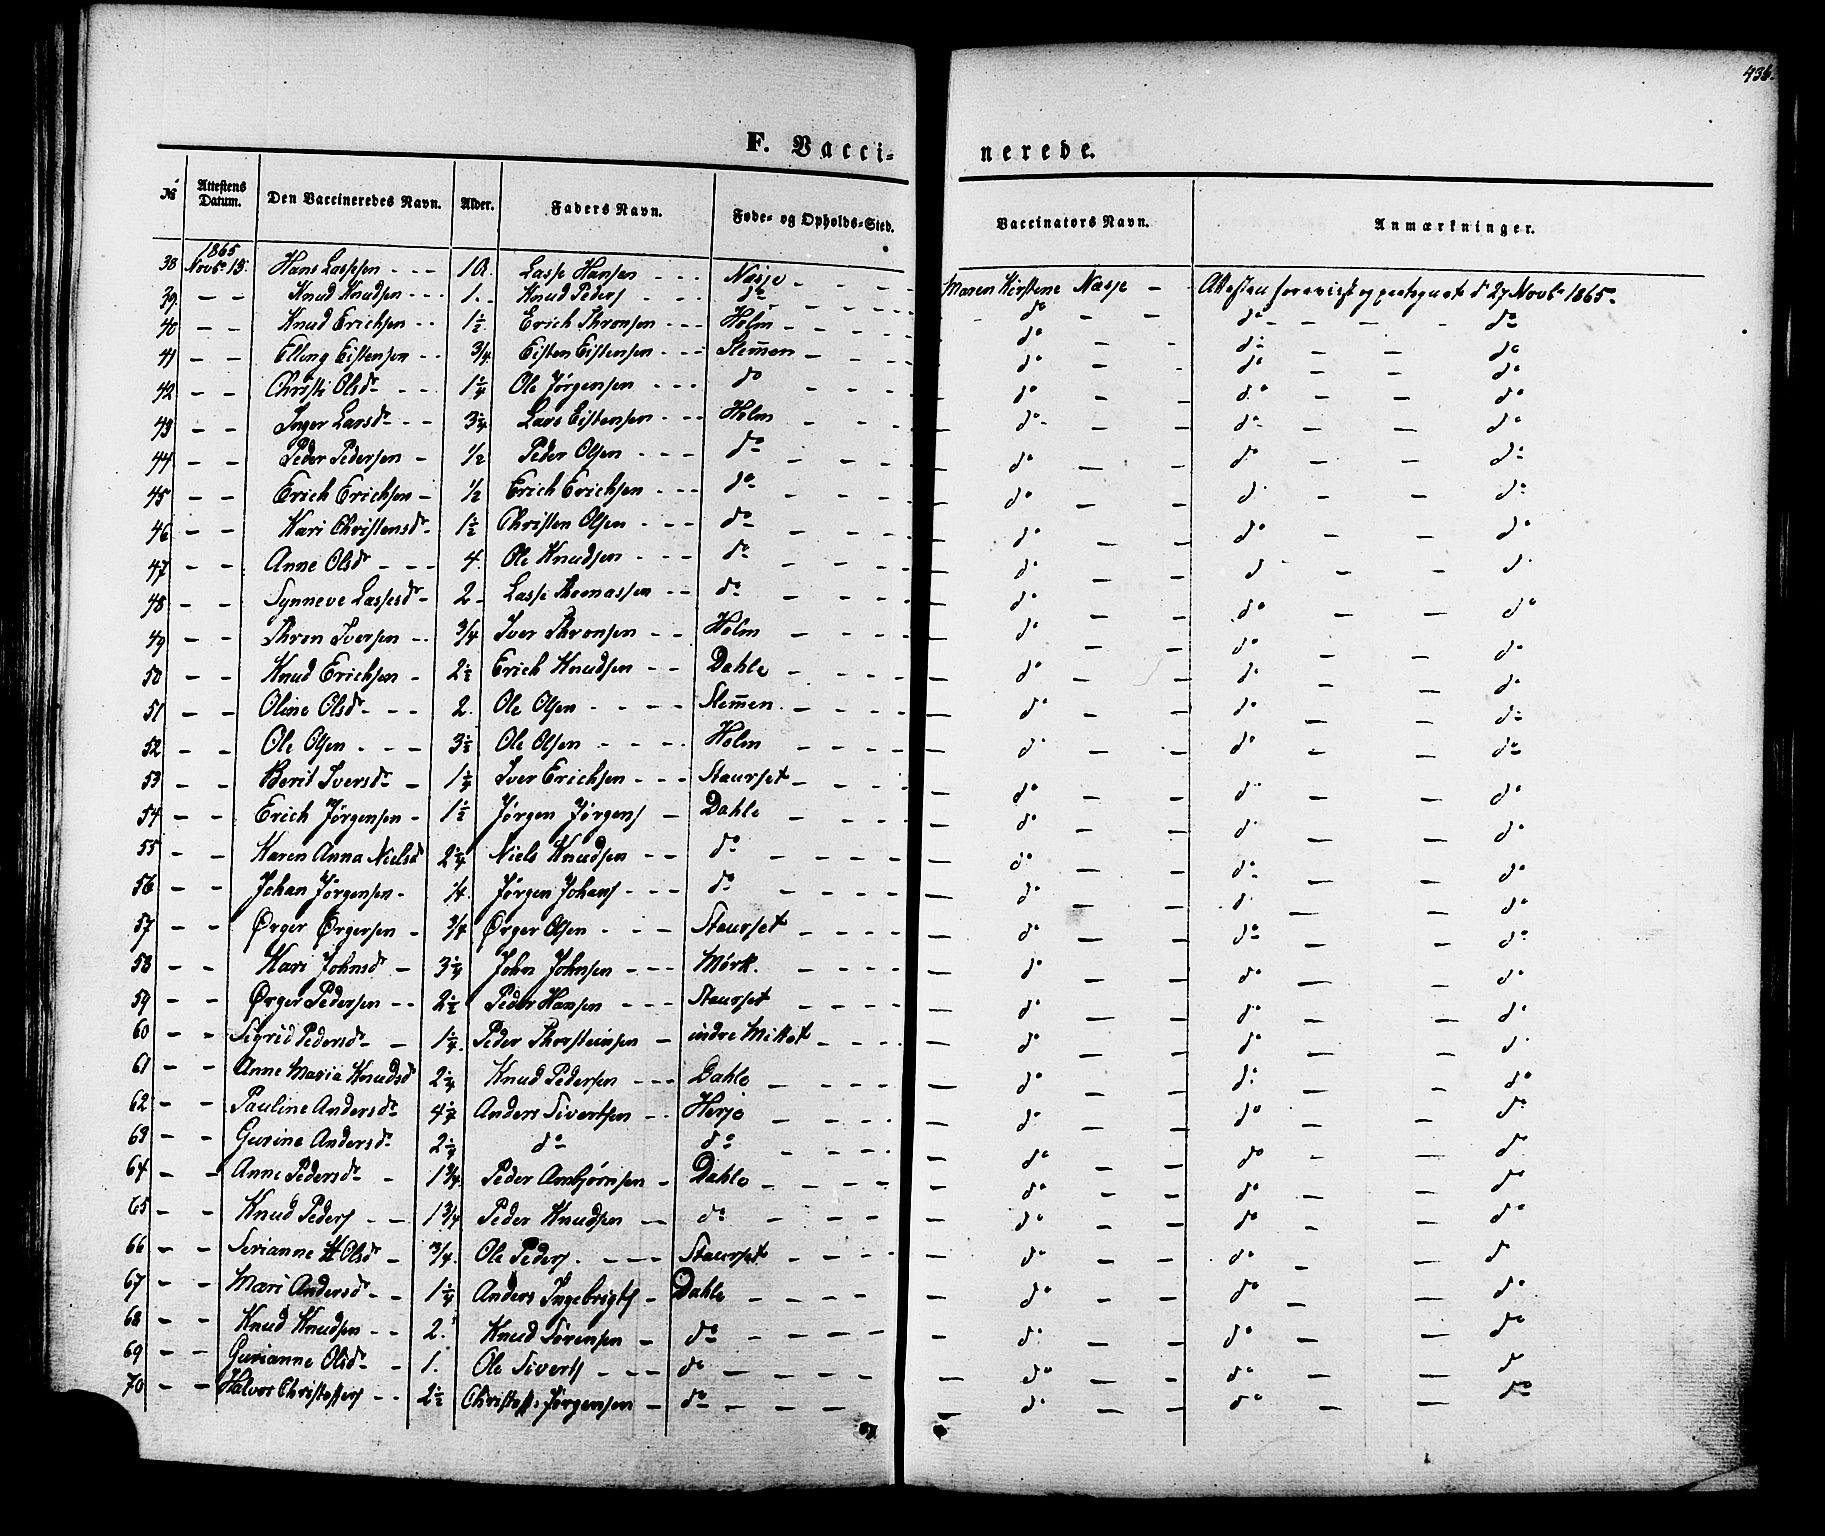 436.
F. Vacci- nerede.
№ | Attestens Datum. | Den Vaccineredes Navn. | Alder. | Faders Navn. | Føde- og Opholds-Sted. | Vaccinators Navn. | Anmærkninger.
1865
38 Novbr 13. Hans Lassesen - - - 10. Lasse Hansen - - - Næsje - - - - Maren Kirstine Næsje - Attesten foreviist og paategnet d 27 Novbr 1865.
39. - - Knud Knudsen - - - 1. - Knud Peders - - - do - - - - do - - do - - - do
40 - - Knud Erichsen - - 1½ Erich Thronsen - - - Holm - - - - do - - do - - do
41 - - Elling Eistensen - - 3/4. Eisten Eistensen - - - Slem̅en - - - - do - - do - - do
42 - - Christi Olsdr - - - 1¼ Ole Jørgensen - - - do - - - - do - - do - - do
43 - - Inger Larsdr - - - 3¼ Lars Eistensen - - - Holm - - - - do - - do - - do
44 - - Peder Pedersen - 1/2 Peder Olsen - - - do - - - - do - - do - - do
45 - - Erich Erichsen - 1/2 Erich Erichsen - - - do - - - - do - - do - - do
46 - - Kari Christensdr - 1½ Christen Olsen - - - do - - - - do - - do - - do
47 - - Anne Olsdr - - - 4. Ole Knudsen - - - do - - - - do - - do - - do
48 - - Synneve Lassesdr - 2 - Lasse Thomassen - - do - - - - do - - do - - do
49 - - Thron Iversen - - 3/4 Iver Thronsen - - Holm - - - - do - - do - - do
50 - - Knud Erichsen - 2½ Erich Knudsen - - Dahle - - - - do - - do - - do
51 - - Oline Olsdr - - - 2. Ole Olsen - - - - Slem̅en. - - - - do - - do - - do
52 - - Ole Olsen - - - 3½ Ole Olsen - - - - Holm - - - - do - - do - - do
53 - - Berit Iversdr - 1¼ Iver Erichsen - - - Staurset - - - - do - - do - - do
54 - - Erich Jørgensen - 1½ Jørgen Jørgens - Dahle - - - - do - - do - - do
55 - - Karen Anna Nielsd 2¼ Niels Knudsen - - do - - - - do - - do - - do
56 - - Johan Jørgensen - 1/4. Jørgen Johans - - - do - - - - do - - do - - do
57 - - Ørger Ørgersen - 3/4 Ørger Olsen - - - Staurset - - - - do - - do - - do
58 - - Kari Johnsdr - 3¼ John Johnsen - - - Mørk. - - - - do - - do - - do
59 - - Ørger Pedersen - - 2½ Peder Hansen - - - Staurset - - - - do - - do - - do
60 - - Sigrid Pedersdr - 1¼. Peder Thorsteinsen - indre Mittet - - - - do - - do - - do
61 - - Anne Maria Knudsd 2¼ Knud Pedersen - - - Dahle - - - - do - - do - - do
62 - - Pauline Andersdr 4½ Anders Sivertsen - - Herjе - - - - do - - do - - do
63 - - Gurine Andersdr 2¼ do do - - - do - - do - - do
64 - - Anne Pedersdr - 1 3/4. Peder Arnbjørnsen - Dahle - - - - do - - do - - do
65 - - Knud Peders - - 1 3/4 Peder Knudsen - - do - - - do - - do - - do
66 - - Serianne Olsdr - 3/4. Ole Peders. - - - Staurset - - - do - - do - - do
67 - - Mari Andersd - - 1¼ Anders Ingebrigts - Dahle - - - - do - - do - - do
68 - - Knud Knudsen - - 2. Knud Sørensen - do - - - - do - - do - - do
69 - - Gurianne Olsdr - 1. Ole Siverts - - - do - - - - do - - do - - do
70 - - Halvor Christoffers - - 2½ Christoff. Jørgensen - do - - - - do - - do - - do